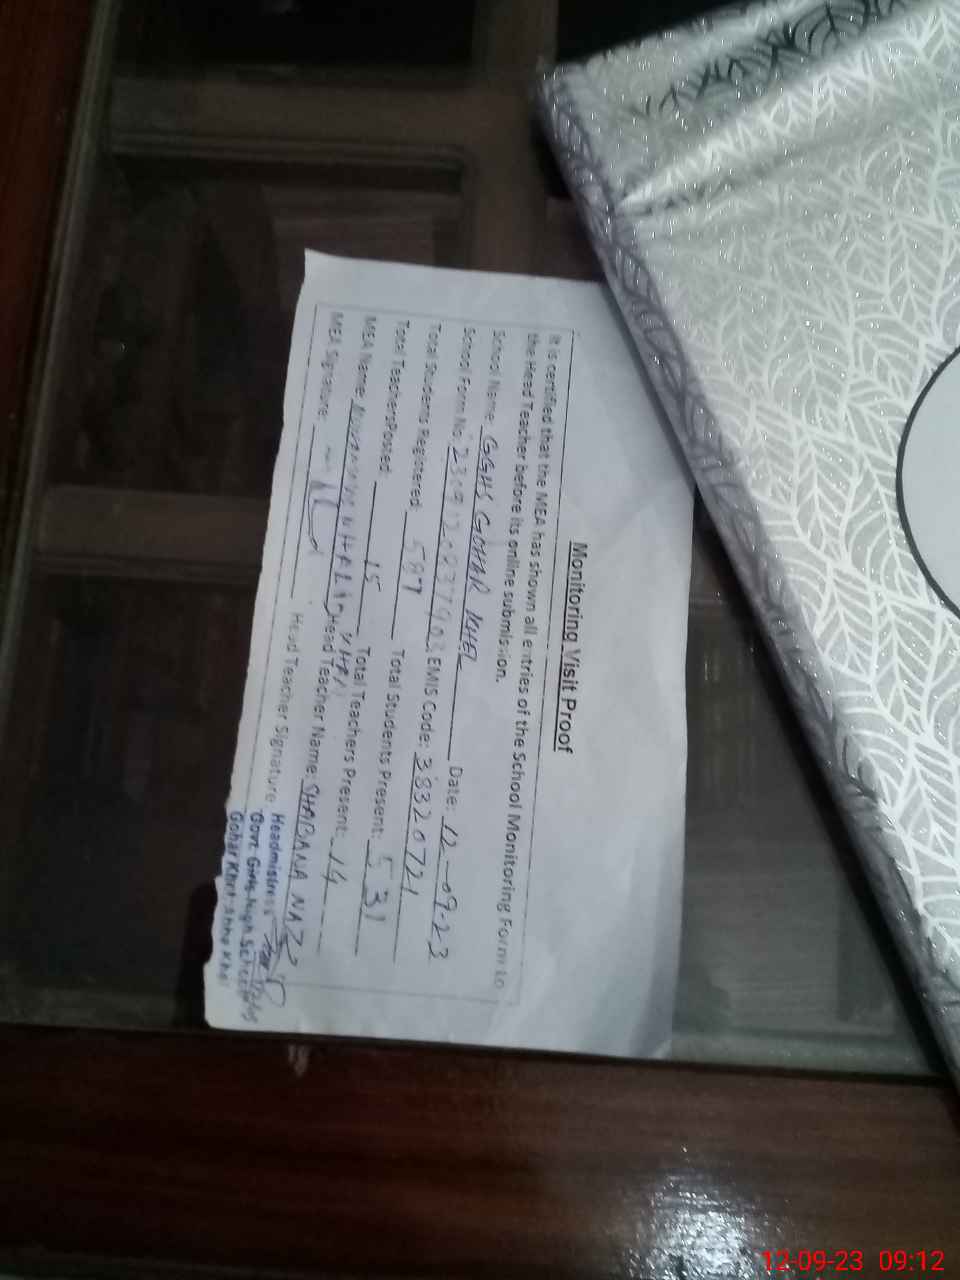 Monitoring Visit Proof
It is certified that the MEA has shown all entries of the School Monitoring Form to
the Head Teacher before its online submission.
School Name: GGHS GOHAR KHEL Date: 12-09-23
School Form No: EMIS Code: 38320721
Total Students Registered 597 Total Students Present: 531
Total Teachers Posted: 15 Total Teachers Present: 14
MEA Name: Head Teacher Name: SHABANA NAZ
MEA Signature: Head Teacher Signature
Headmistress
Govt: Girls High School
Gohar Khel
12-09-23 09:12